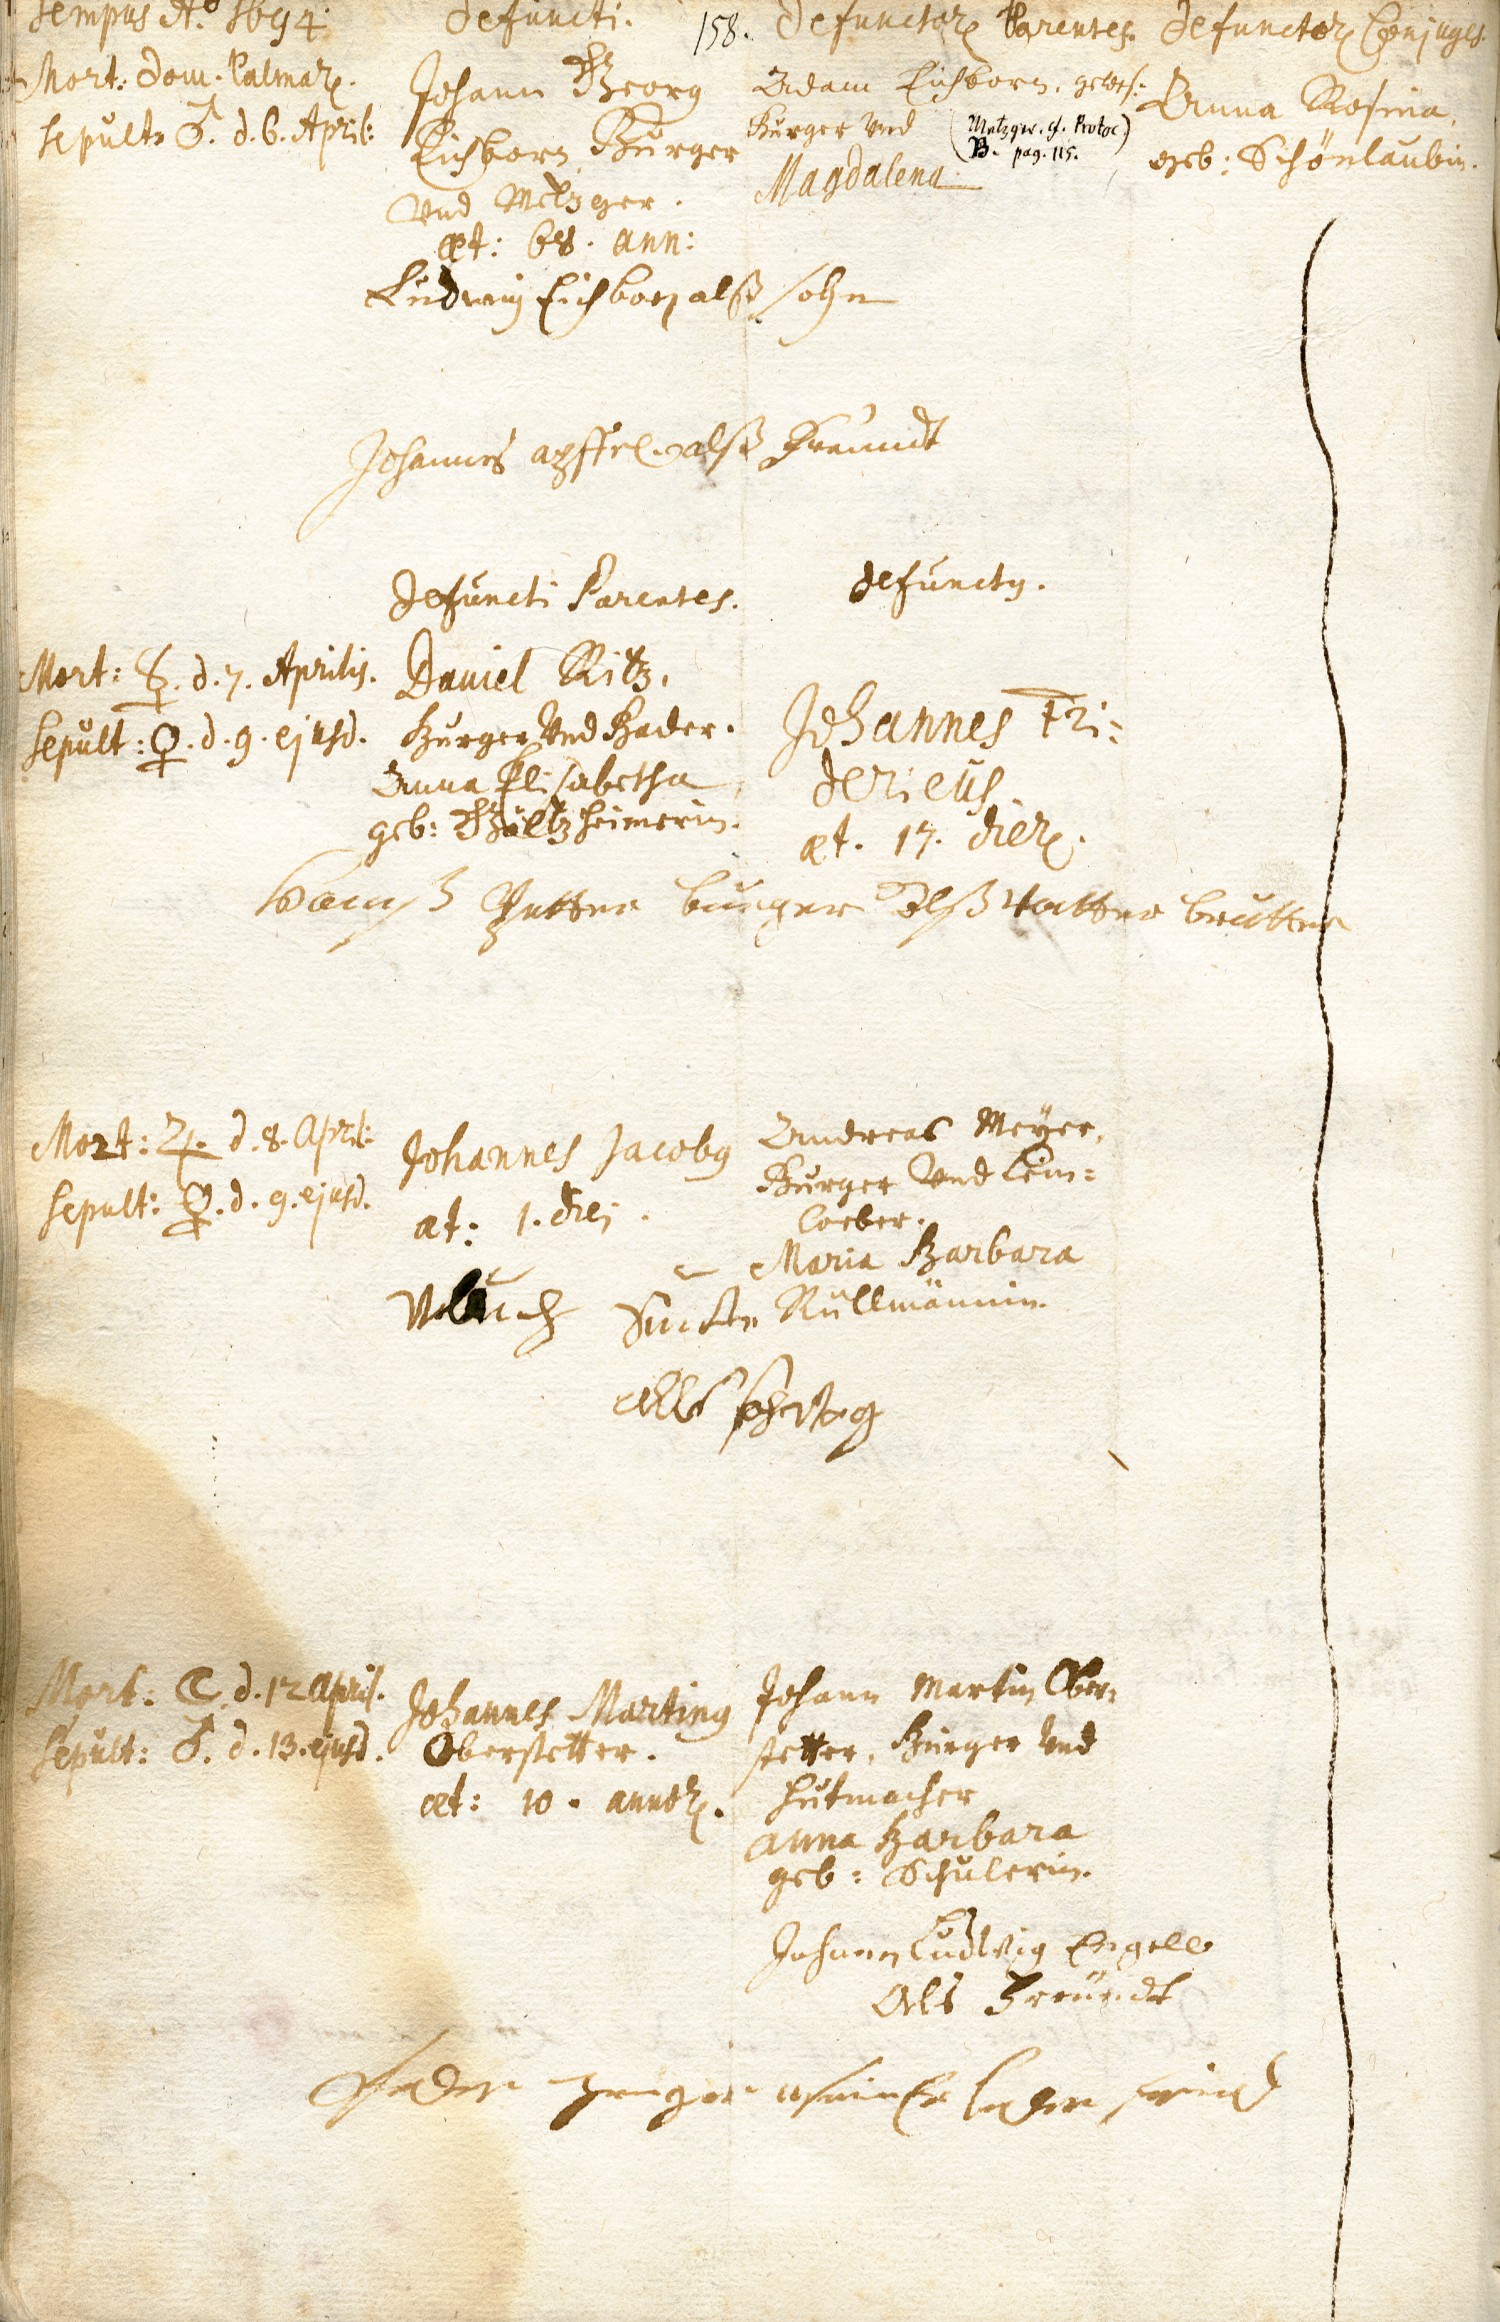 Tempus A.o 1694.
defuncti.
158.
defunctor. Parentes.
defunctor. Conjuges.
Mort: Dom. Palmar.
Sepult: ♂. d. 6. April:
Johann Georg
Eichborn, Burger
Vnd Metzger.
æt: 68. ann:
Adam Eichborn, gewes:
Burger Vnd
(Metzger. cf. Protoc
B. pag. 115.)
Magdalena
Anna Rosina,
geb: Schönlaubin.
Ludwig Eichborn alß sohn
Johannes apffel alß freundt
Defuncti Parentes.
defunctus.
Mort: ☿. d. 7. Aprilis.
Sepult: ♀. d. 9. ejusd.
Daniel Ritz,
Burger Vnd Bader.
Anna Elisabetha,
geb: Göltzheimerin.
Johannes Fri-
dericus.
æt. 17. dier.
Petter burger alß Vatter brutter
Mort: ♃. d. 8. April:
Sepult: ♀. d. 9. ejusd.
Johannes Jacobus
æt: 1. diei.
Andreas Meyer,
Burger Vnd
Maria Barbara
Rullmännin.
Mort: ☾. d. 12 April.
Sepult: ♂. d. 13. ejusd.
Johannes Martinus
Oberstetter.
æt: 10. annor.
Johann Martin Ober-
stetter, Burger Vnd
Hutmacher
Anna Barbara
geb: Schulerin.
Johann Ludwig Engell
Als Freundt